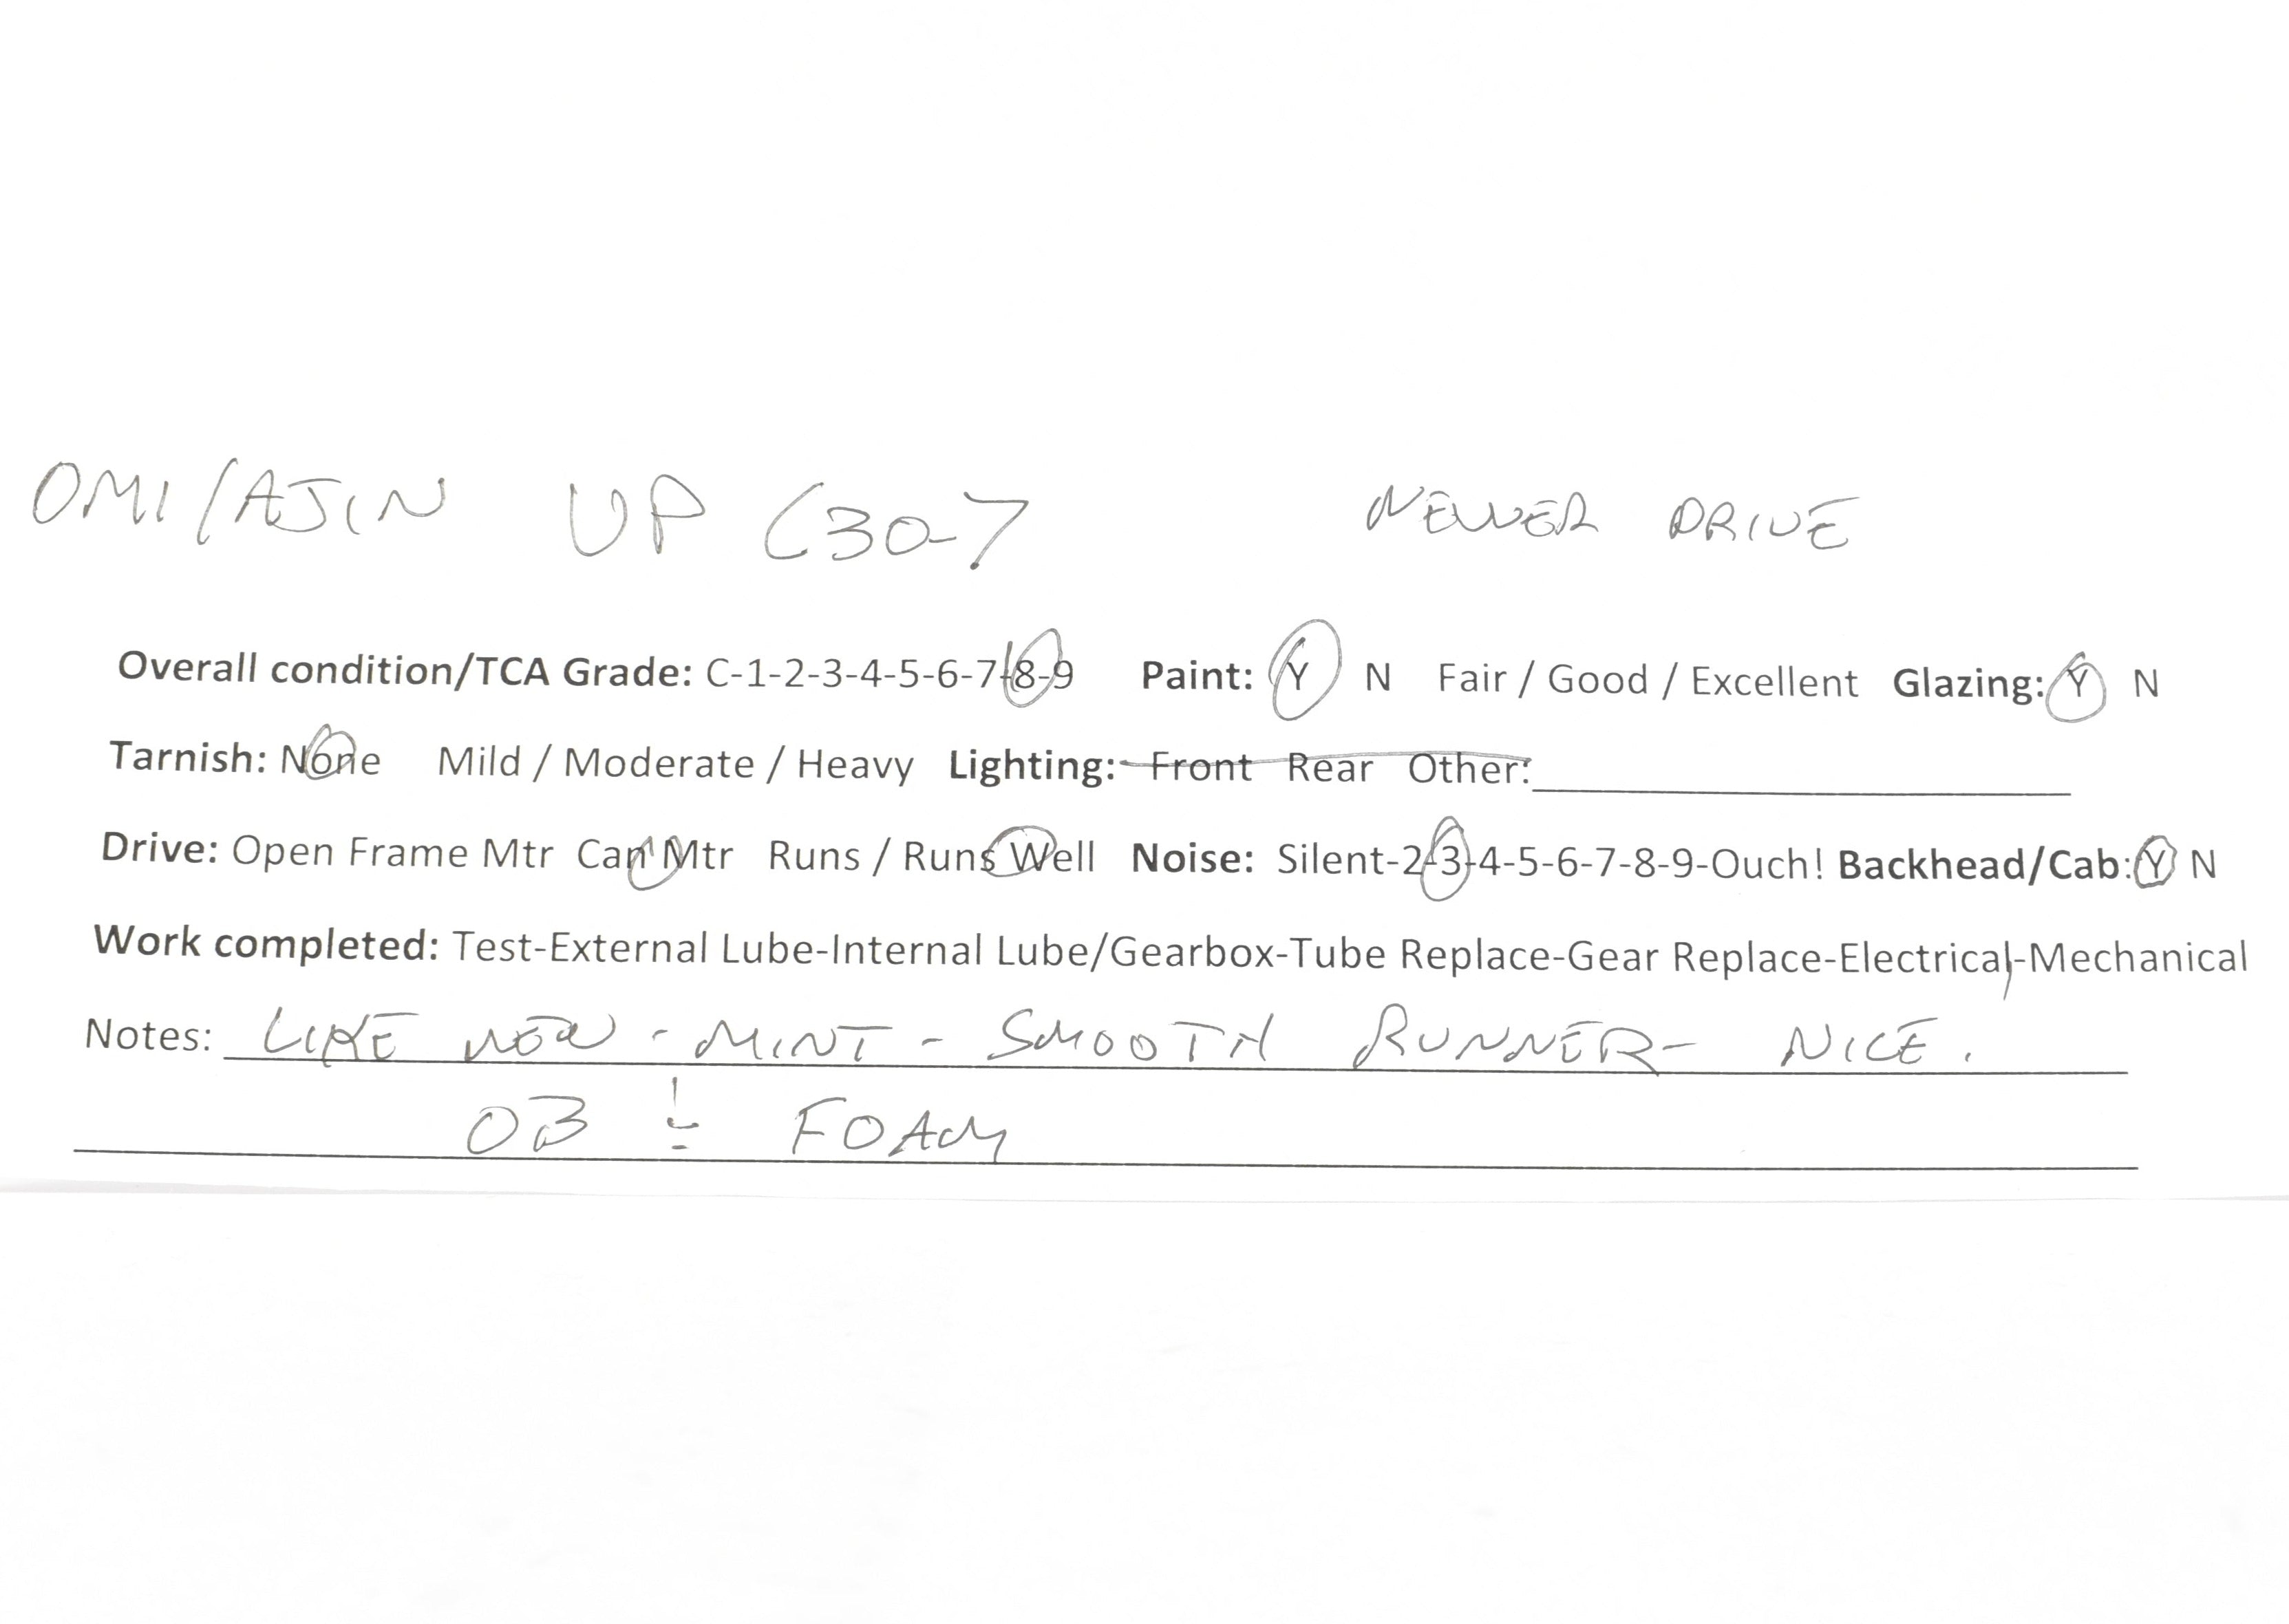 OMI/AJIN UP C30-7 NEWER DRIVE
Overall condition/TCA Grade: C-1-2-3-4-5-6-7-8-9 Paint: Y N Fair / Good / Excellent Glazing: Y N
Tarnish: None Mild / Moderate / Heavy Lighting: Front Rear Other:
Drive: Open Frame Mtr Can Mtr Runs / Runs Well Noise: Silent-2-3-4-5-6-7-8-9-Ouch! Backhead/Cab: Y N
Work completed: Test-External Lube-Internal Lube/Gearbox-Tube Replace-Gear Replace-Electrical-Mechanical
Notes: LIKE NEW - MINT - SMOOTH RUNNER - NICE.
OB & FOAM